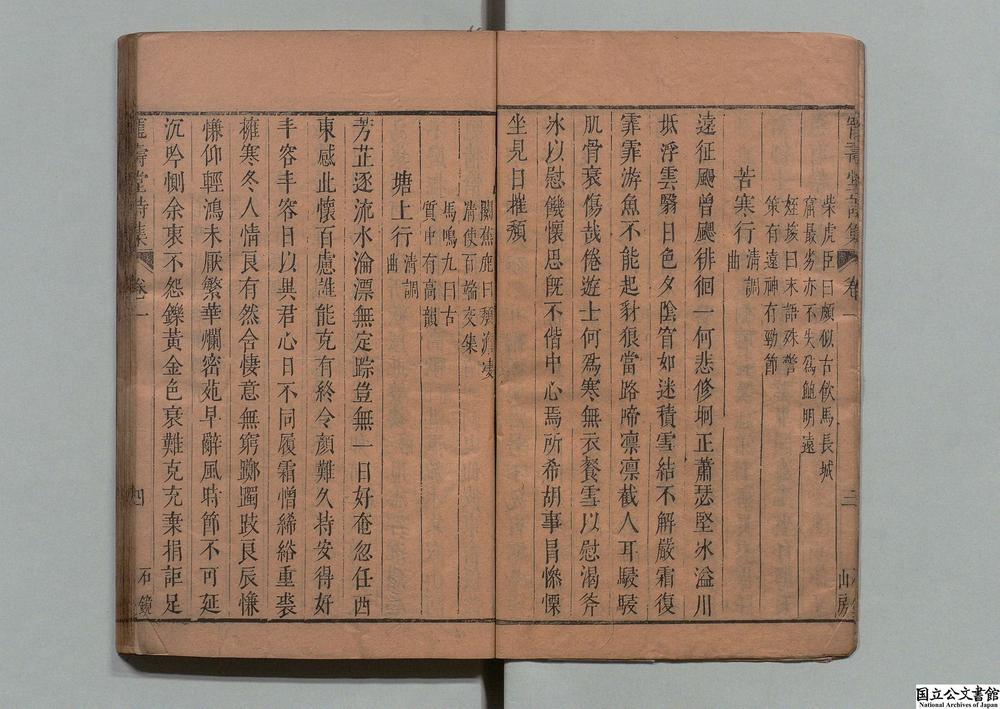 柴虎臣曰頗似古飲馬長城
窟最劣亦不失爲鮑明遠
姪掞曰末語殊警
策有遠神有勁節
苦寒行清調曲
遠征飈曾颸徘徊一何悲修坰正蕭瑟堅冰溢川
坻浮雲翳日色夕陰窅如迷積雪結不解嚴霜復
霏霏游魚不能起豺狼當路啼凛凛截人耳駸駸
肌骨衰傷哉倦遊士何爲寒無衣餐雪以慰渴斧
冰以慰饑懷思旣不偕中心焉所希胡事冒慘慄
坐見日摧頹
關蕉鹿曰頹澹凄
清使百端交集
馬鳴九曰古
質中有高韻
塘上行清調曲
芳芷逐流水淪漂無定踪豈無一日好奄忽任西
東感此懷百慮誰能克有終令顏難久持安得好
丰容丰容日以異君心日不同履霜憎絺綌重裘
擁寒冬人情良有然含悽意無窮躑躅歧良辰慊
慊仰輕鴻未厭繁華爛密苑早辭風時節不可延
沉吟惻余衷不怨鑠黃金色衰難克充棄捐詎足
壽堂詩集
卷一
三
山房
四
石鏡
国立公文書館
National Archives of Japan